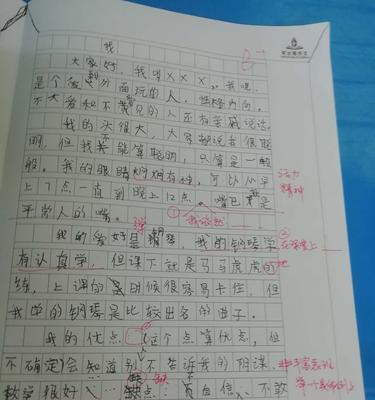 我
B⁻
大家好，我叫XXX。我呢，
是个爱到外面玩的人，性格内向，
不大爱和不常见的人还有老师说话。
我的头很大，大家都说我很聪
明，但我不能算聪明，只算是一般
般。我的眼睛炯炯有神，可以从早
上7点一直到晚上12点。嘴巴是
平常人的嘴。
活力
精神
①我依然
弹
我的爱好是钢琴，我的钢琴学
有认真学，但课下就是马马虎虎的
②
在课堂上
地
练，上课的时候很容易卡住，但
我学的钢琴是比较出名的曲子。
我的优点，这个点算优点，但
不确定会知道别不告诉我的阴谋，
数学很好
缺点：自信，不敢